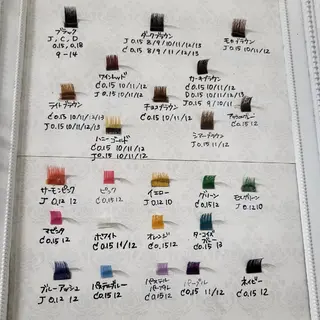 ブラック
J, C, D
0.15, 0.18
9-14
ダークブラウン
J 0.15 8/9/10/11/12/13
C 0.15 8/9/10/11/12/13
モカブラウン
J 0.15 10/11/12
ワインレッド
C 0.15 10/11/12
J 0.15 10/11/12
カーキブラウン
C 0.15 10/11/12
D 0.15 10/11/12
J 0.15 9/10/11
ライトブラウン
C 0.15 10/11/12/13
J 0.15 10/11/12/13
チョコブラウン
C 0.15 10/11/12
アッシュグレー
C 0.15 12
ハニーゴールド
C 0.15 10/11/12
J 0.15 10/11/12
シアーブラウン
J 0.15 11/12
サーモンピンク
J 0.12 12
ピンク
C 0.15 12
イエロー
J 0.12 10
グリーン
C 0.15 12
モスグリーン
J 0.12 10
マゼンタ
C 0.15 12
ホワイト
C 0.15 11/12
オレンジ
C 0.15 12
ターコイズ
ブルー
C 0.15 13
ブルーアッシュ
J 0.12 12
パステルブルー
C 0.15 12
パステル
パープル
C 0.15 12
パープル
C 0.15 11/12
ネイビー
C 0.15 12